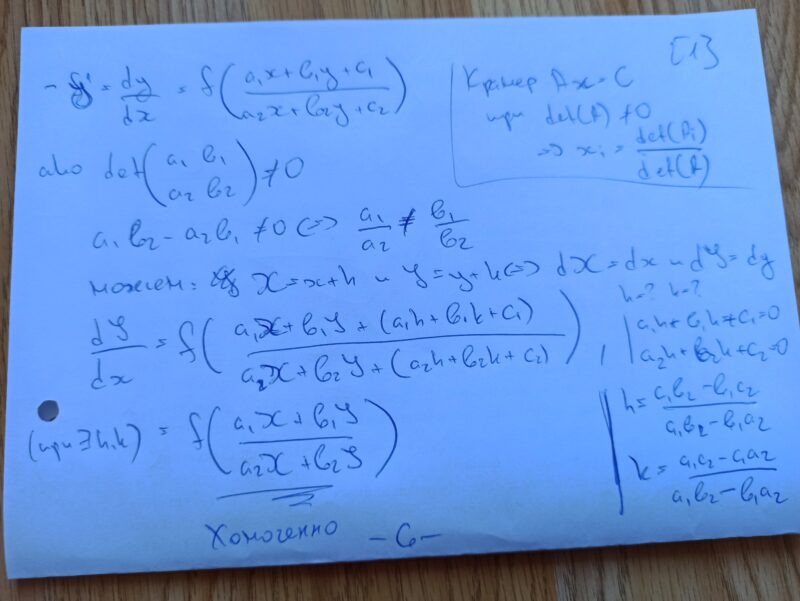 [1]
- y' = dy/dx = f( (a₁x+b₁y+c₁)/(a₂x+b₂y+c₂) )
Крамер Ax=C
при det(A) ≠0
=> xᵢ = det(Aᵢ)/det(A)
ако det( a₁ b₁
a₂ b₂ ) ≠0
a₁b₂ - a₂b₁ ≠0 <=> a₁/a₂ ≠ b₁/b₂
можем: X=x+h и Y=y+k <=> dX=dx и dY=dy
h=? k=?
dY/dx = f( (a₁X+b₁Y+(a₁h+b₁k+c₁))/(a₂X+b₂Y+(a₂h+b₂k+c₂)) ),
| a₁h+b₁k+c₁=0
a₂h+b₂k+c₂=0
(при ∃h,k) = f( (a₁X+b₁Y)/(a₂X+b₂Y) )
h= (c₁b₂-b₁c₂)/(a₁b₂-b₁a₂)
k= (a₁c₂-c₁a₂)/(a₁b₂-b₁a₂)
Хомогенно
-6-